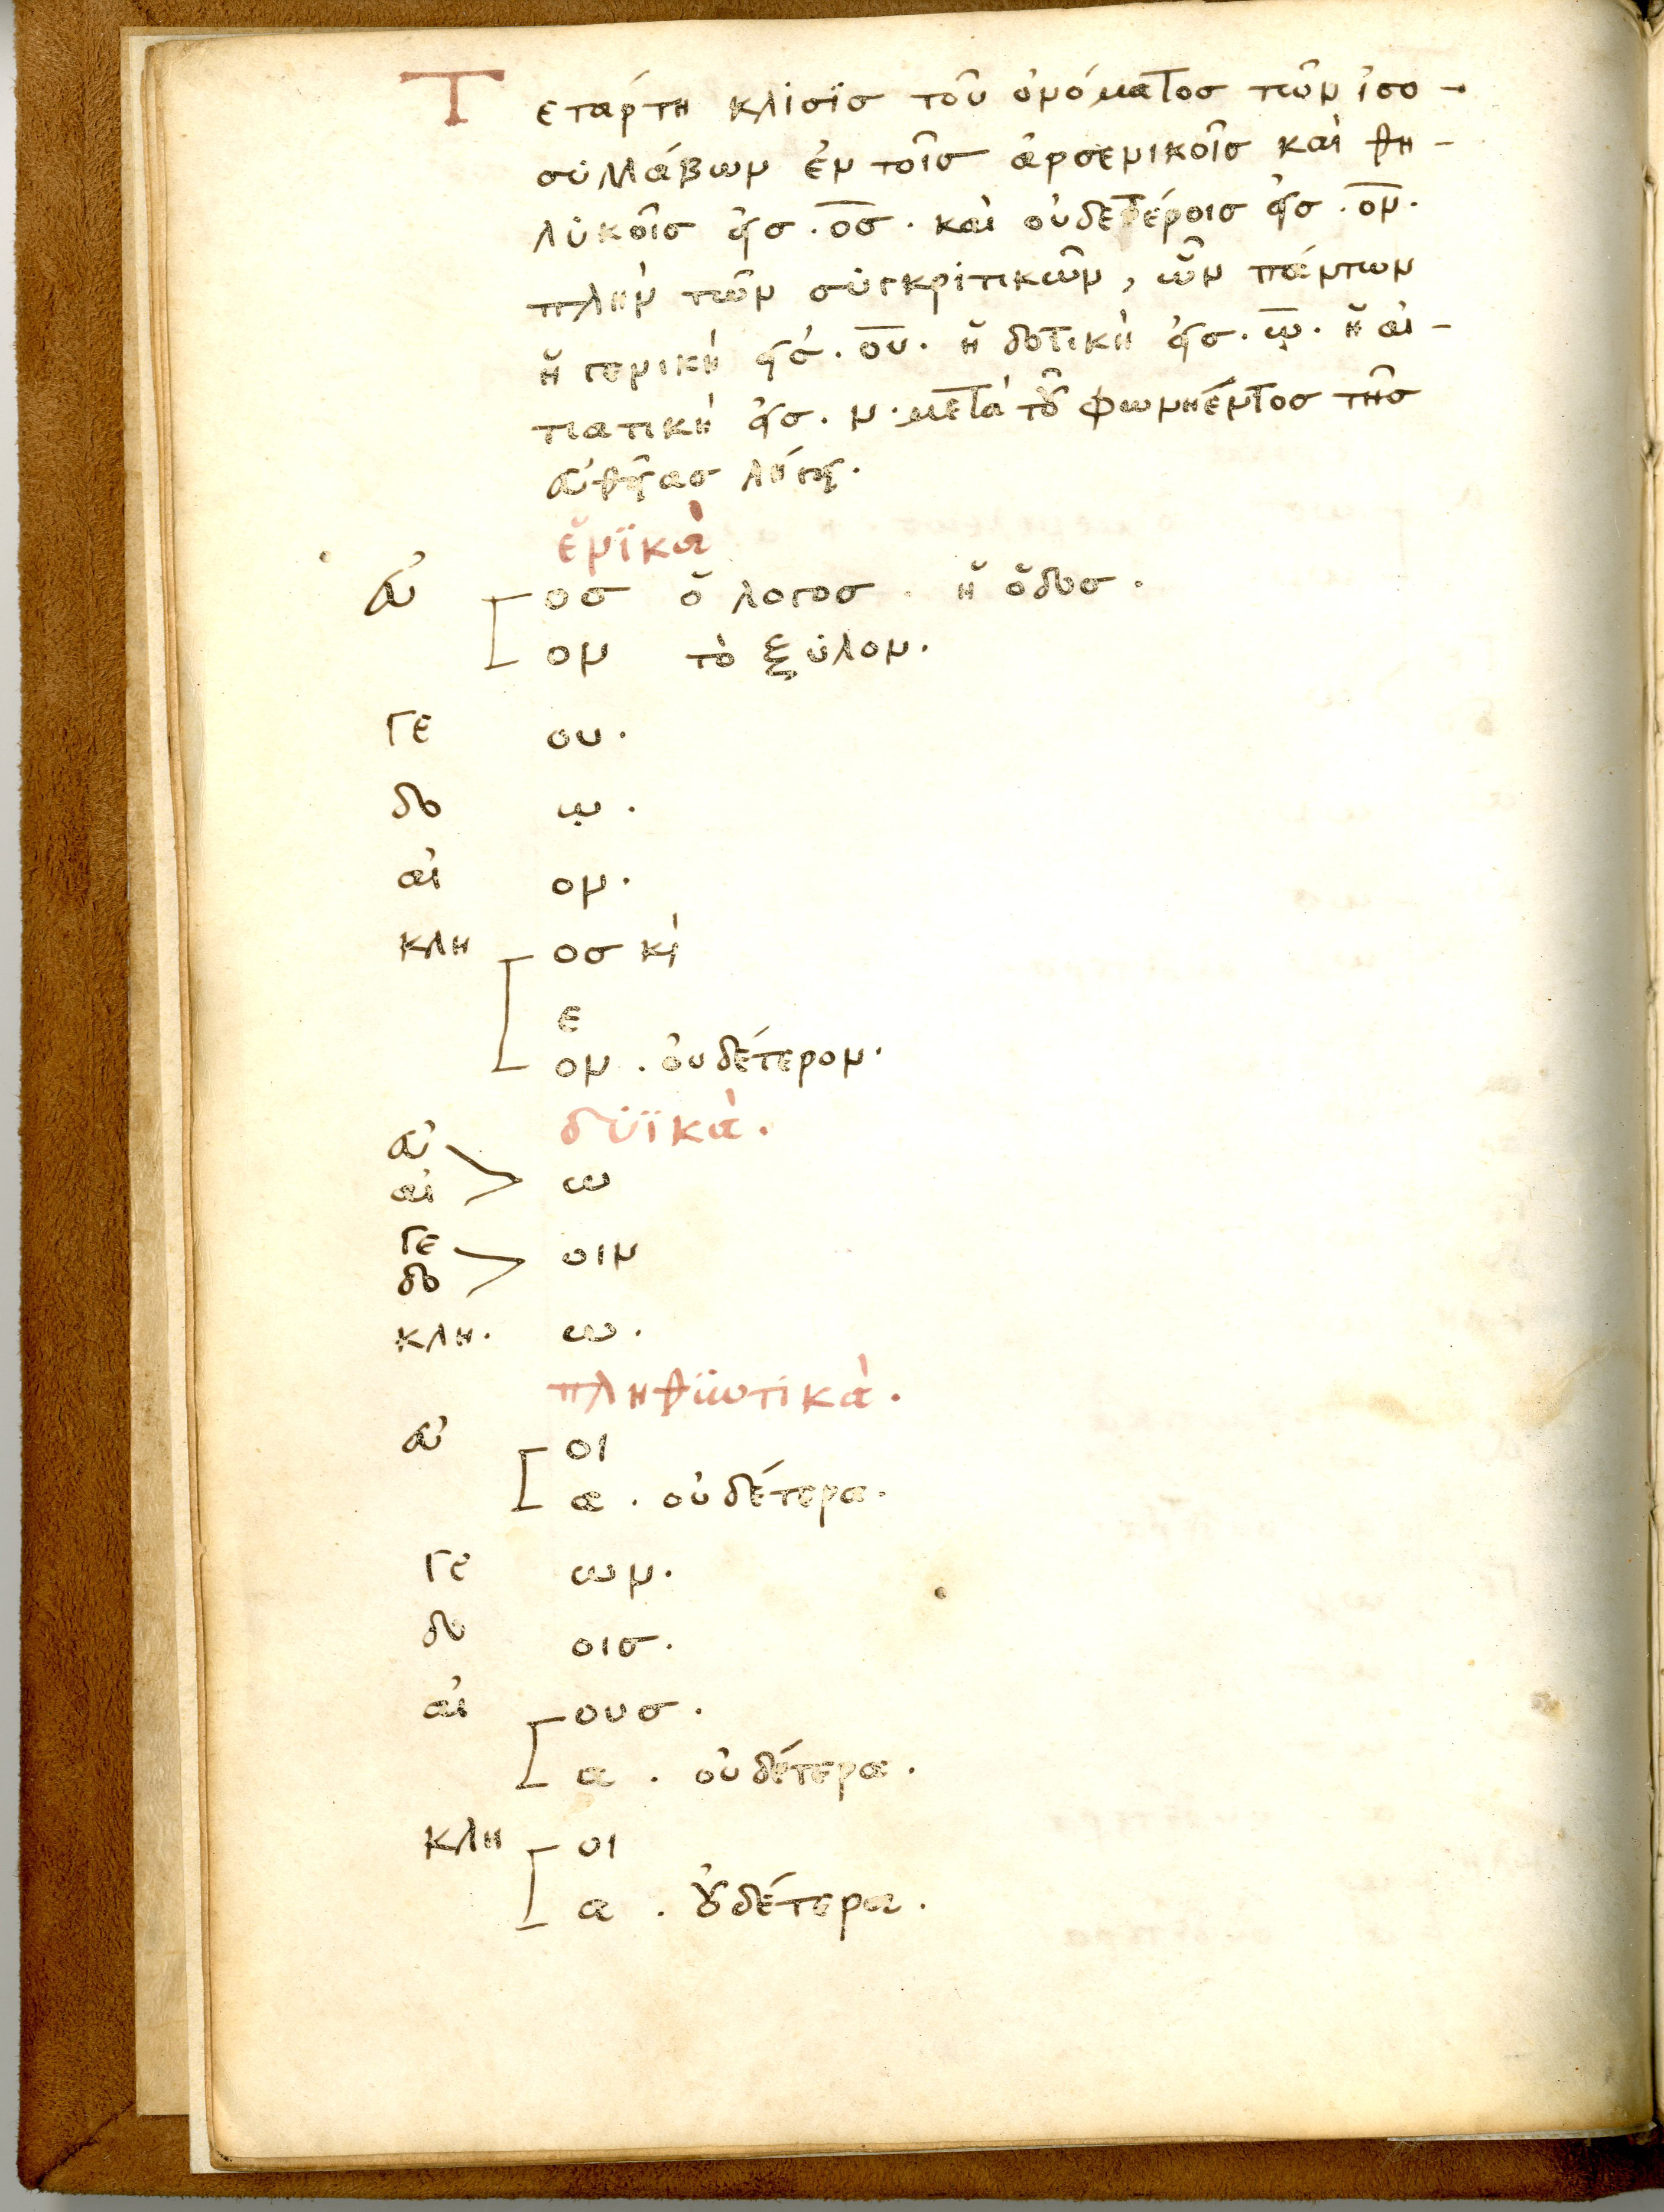 Τετάρτη κλίσϊσ τοῦ ὀνόματοσ τῶν ἰσο-
συλλάβων ἐν τοῖσ ἀρσενικοῖσ καὶ θη-
λυκοῖσ εἰσ · οσ · καὶ οὐδετέροισ εἰσ · ον ·
πλὴν τῶν συγκριτικῶν, ὧν πάντων
ἡ γενικὴ εἰσ · ου · ἡ δοτικὴ εἰσ · ῳ · ἡ αἰ-
τιατικὴ εἰσ · ν · μετὰ τοῦ φωνήεντοσ τῆσ
εὐθείασ
ἑνϊκὰ
εὐ οσ ὁ λογοσ · ἡ ὁδοσ ·
ον τὸ ξύλον ·
γε ου ·
δο ῳ ·
αἰ ον ·
κλη οσ κὶ
ε
ον · ὀυδέτερον ·
δυϊκὰ ·
εὐ
αἰ ω
γε
δο οιν
κλη · ω ·
πληθϋωτικὰ ·
εὐ οι
α · οὐδέτερα ·
γε ων ·
δο οισ ·
αἰ ουσ ·
α · οὐδέτερα ·
κλη οι
α · οὐδέτερα ·